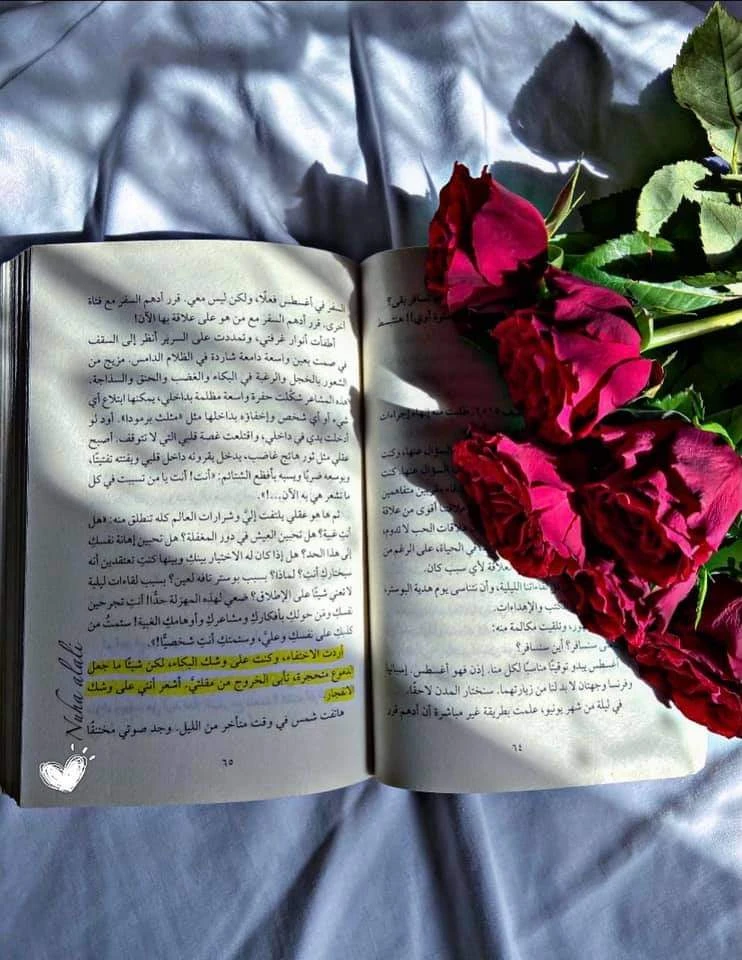 نسافر بقى؟
أوي!! هتتبسط
طلبت منه إنهاء إجراءات
السؤال عنها، وكنت
السؤال عنها. كنت
طرفين متفاهمين
أقوى من علاقة
علاقات الحب لا تدوم،
في الحياة، على الرغم من
علاقة لأي سبب كان.
لقاءاتنا الليلية، وأن نتناسى يوم هدية البوستر،
الكتب والإهداءات.
وتلقيت مكالمة منه:
سنسافر؟ أين سنسافر؟
أغسطس يبدو توقيتًا مناسبًا لكل منا. إذن فهو أغسطس. إسبانيا
وفرنسا وجهتان لا بد لنا من زيارتهما. سنختار المدن لاحقًا.
في ليلة من شهر يونيو، علمت بطريقة غير مباشرة أن أدهم قرر
٦٤
السفر في أغسطس فعلًا، ولكن ليس معي. قرر أدهم السفر مع فتاة
أخرى، قرر أدهم السفر مع من هو على علاقة بها الآن!
أطفأت أنوار غرفتي، وتمددت على السرير أنظر إلى السقف
في صمت بعين واسعة دامعة شاردة في الظلام الدامس. مزيج من
الشعور بالخجل والرغبة في البكاء والغضب والحنق والسذاجة.
هذه المشاعر شكَّلت حفرة واسعة مظلمة بداخلي، يمكنها ابتلاع أي
شيء أو أي شخص وإخفاؤه بداخلها مثل «مثلث برمودا». أود لو
أدخلت يدي في داخلي، واقتلعت غصة قلبي التي لا تتوقف. أصبح
عقلي مثل ثور هائج غاضب، يدخل بقرونه داخل قلبي ويفتته تفتيتًا،
ويوسعه ضربًا ويسبه بأفظع الشتائم: «أنت! أنت يا من تسببت في كل
ما تشعر هي به الآن...!».
ثم ها هو عقلي يلتفت إليَّ وشرارات العالم كله تنطلق منه: «هل
أنتِ غبية؟ هل تحبين العيش في دور المغفلة؟ هل تحبين إهانة نفسكِ
إلى هذا الحد؟ هل إذا كان له الاختيار بينك وبينها كنتِ تعتقدين أنه
سيختارك أنتِ؟ لماذا؟ بسبب بوستر تافه لعين؟ بسبب لقاءات ليلية
لا تعني شيئًا على الإطلاق؟ ضعي لهذه المهزلة حدًّا! أنتِ تجرحين
نفسكِ ومَن حولكِ بأفكاركِ ومشاعركِ وأوهامكِ الغبية! سئمتُ من
كذبك على نفسك وعليَّ، وسئمتك أنتِ شخصيًّا!».
أردت الاختفاء، وكنت على وشك البكاء، لكن شيئًا ما جعل
الدموع متحجرة، تأبى الخروج من مقلتيَّ. أشعر أنني على وشك
الانفجار
هاتفت شمس في وقت متأخر من الليل. وجد صوتي مختنقًا
٦٥
Nuha alali